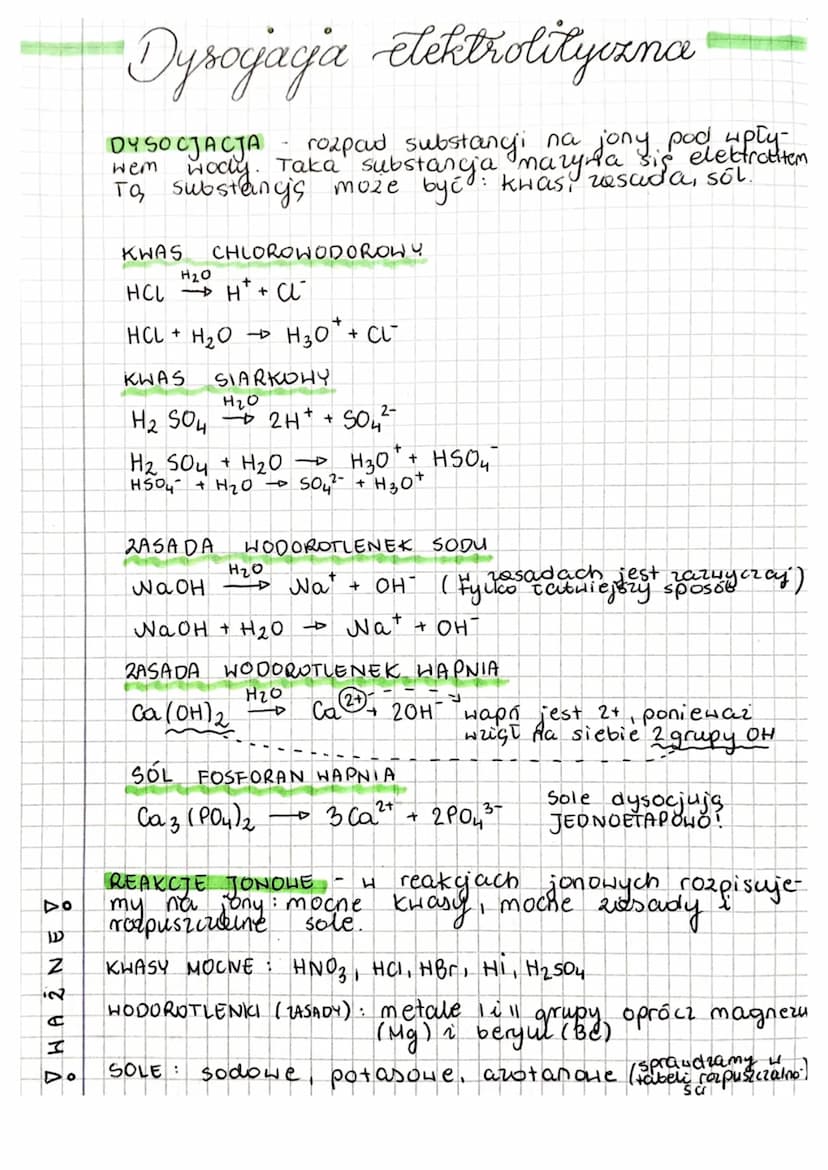 Dysocjacja elektrolityczna
DYSOCJACJA - rozpad substancji na jony pod wpły-
wem wody. Taka substancja nazywa się elektrolitem
Tą substancją może być: kwas, zasada, sól.
KWAS CHLOROWODOROWY
HCl →(H₂O) H⁺ + Cl⁻
HCl + H₂O → H₃O⁺ + Cl⁻
KWAS SIARKOWY
H₂SO₄ →(H₂O) 2H⁺ + SO₄²⁻
H₂SO₄ + H₂O → H₃O⁺ + HSO₄⁻
HSO₄⁻ + H₂O → SO₄²⁻ + H₃O⁺
ZASADA WODOROTLENEK SODU
NaOH →(H₂O) Na⁺ + OH⁻ (w zasadach jest zazwyczaj
tylko łatwiejszy sposób)
NaOH + H₂O → Na⁺ + OH⁻
ZASADA WODOROTLENEK WAPNIA
Ca(OH)₂ →(H₂O) Ca²⁺ + 2OH⁻ wapń jest 2+, ponieważ
wziął na siebie 2 grupy OH
SÓL FOSFORAN WAPNIA
Ca₃(PO₄)₂ → 3Ca²⁺ + 2PO₄³⁻ Sole dysocjują
JEDNOETAPOWO!
REAKCJE JONOWE - w reakcjach jonowych rozpisuje-
my na jony: mocne kwasy, mocne zasady i
rozpuszczalne sole.
WAŻNE
KWASY MOCNE: HNO₃, HCl, HBr, Hi, H₂SO₄
WODOROTLENKI (ZASADY): metale I i II grupy oprócz magnezu
(Mg) i berylu (Be)
SOLE: sodowe, potasowe, azotanowe (sprawdzamy w
tabeli rozpuszczalno-
ści)